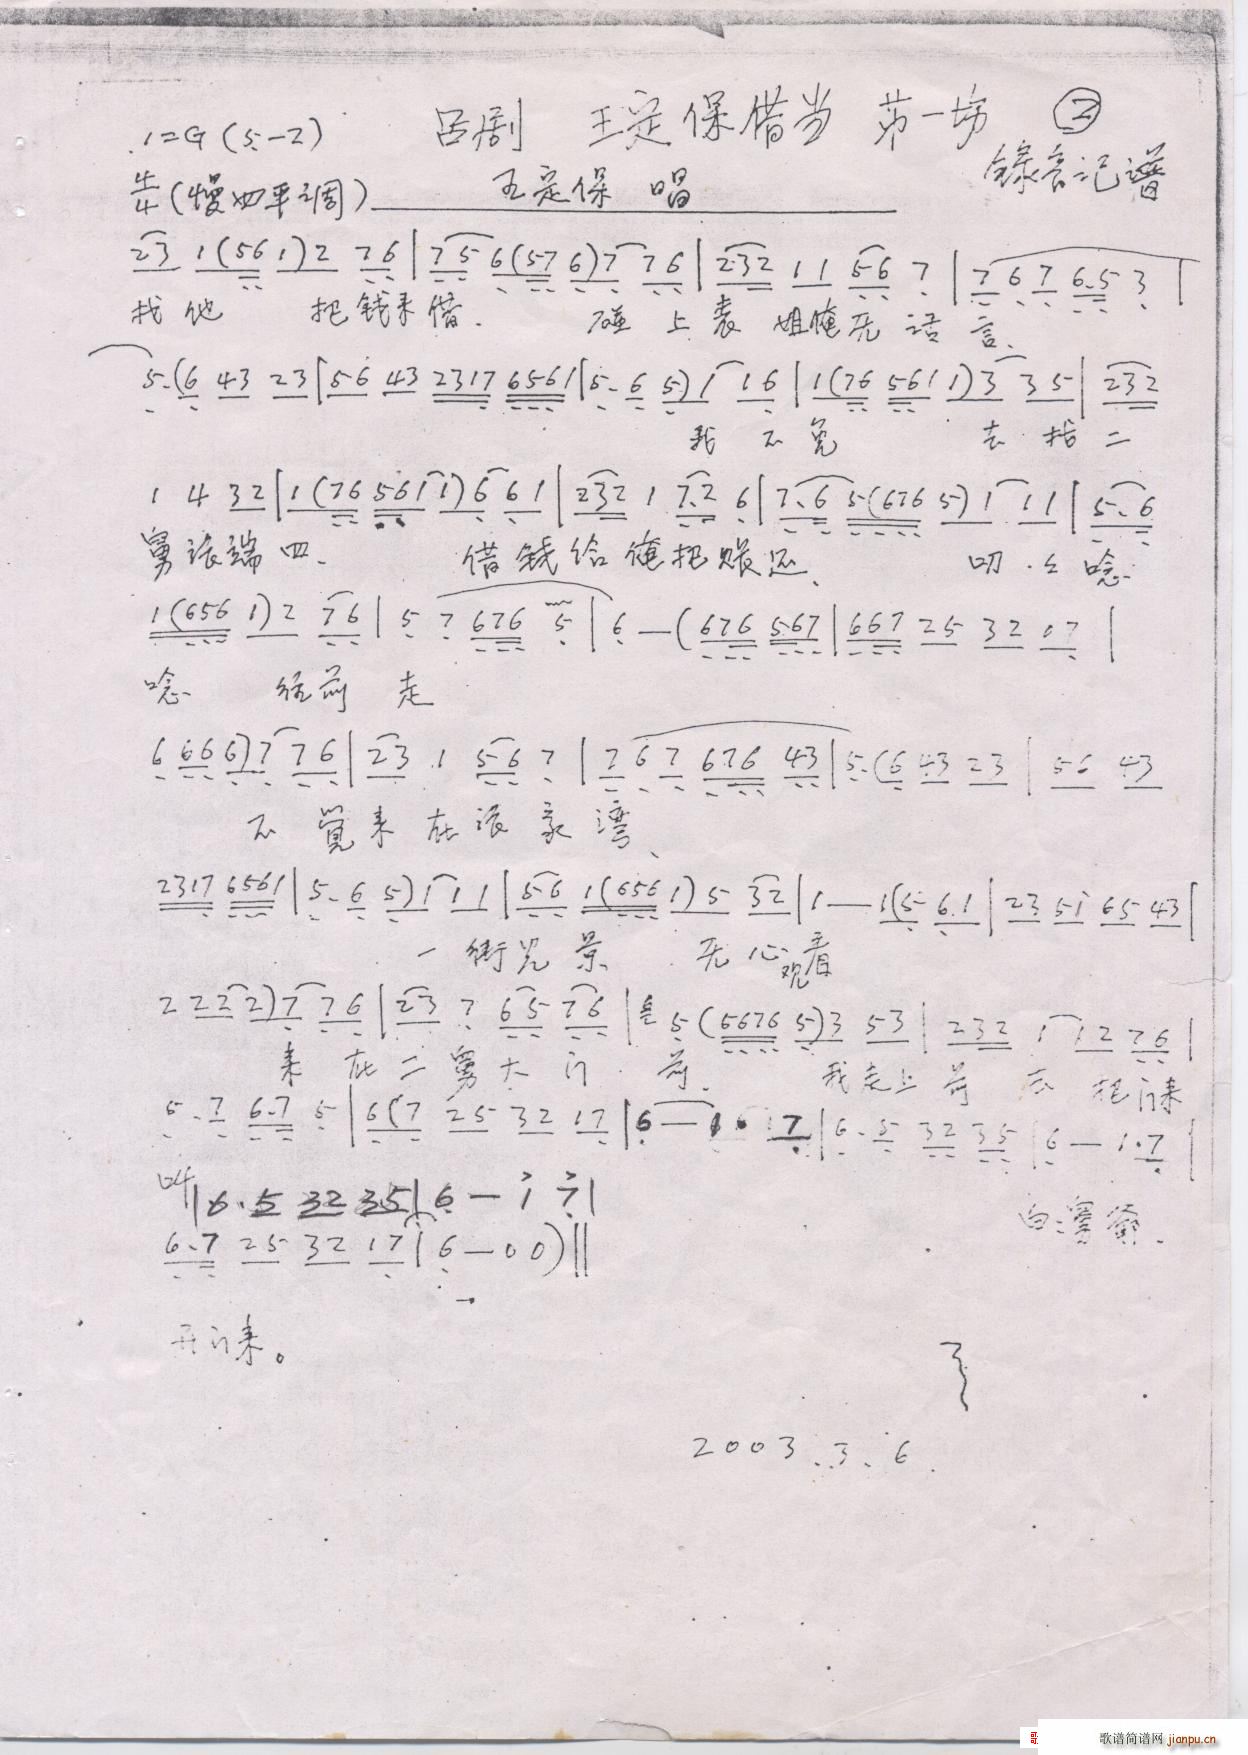 吕剧 王定保借当 第一场 ②
1=G (5-2)
录音记谱
4/4 (慢四平调) 王定保 唱
23 1(561)2 76|75 6(576)7 76|232 11 56 7|767 6.53|
找他 把钱来借. 碰上表姐俺无话言.
5.(6 43 23|56 43 2317 6561|5.6 5)1 16|1(76 5611)3 35|232
我不免 去找二
1 4 32|1(76 5611)6 61|232 1 7.2 6|7.6 5(676 5)1 11|5.6
舅张端四. 借钱给俺把账还. 叨 念
1(656 1)2 76|5 7 676 5|6—(676 567|667 25 32 17|
念 往前走
6 666)7 76|23 1 56 7|767 676 43|5.(6 43 23|56 43
不觉来在张家湾.
2317 6561|5.6 5)1 11|56 1(656 1)5 32|1—1(5 6.1|23 5i 65 43|
一街光景 无心观看
2 222)7 76|23 7 65 76|5(6676 5)3 53|232 1 12 76|
来在二舅大门前. 我走上前去把门来
5.7 6.7 5|6(7 25 32 17|6—1.7|6.5 32 35|6—1.7|
叫|6.5 32 35|6—i 7|
白:舅爷.
6.7 25 32 17|6—00)‖
开门来。
2003.3.6.
歌谱简谱网 jianpu.cn